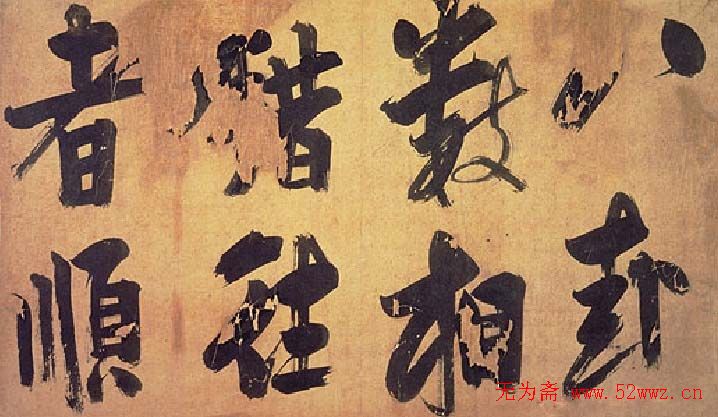 八卦
數相
錯往
者順
无为斋 www.52wwz.cn